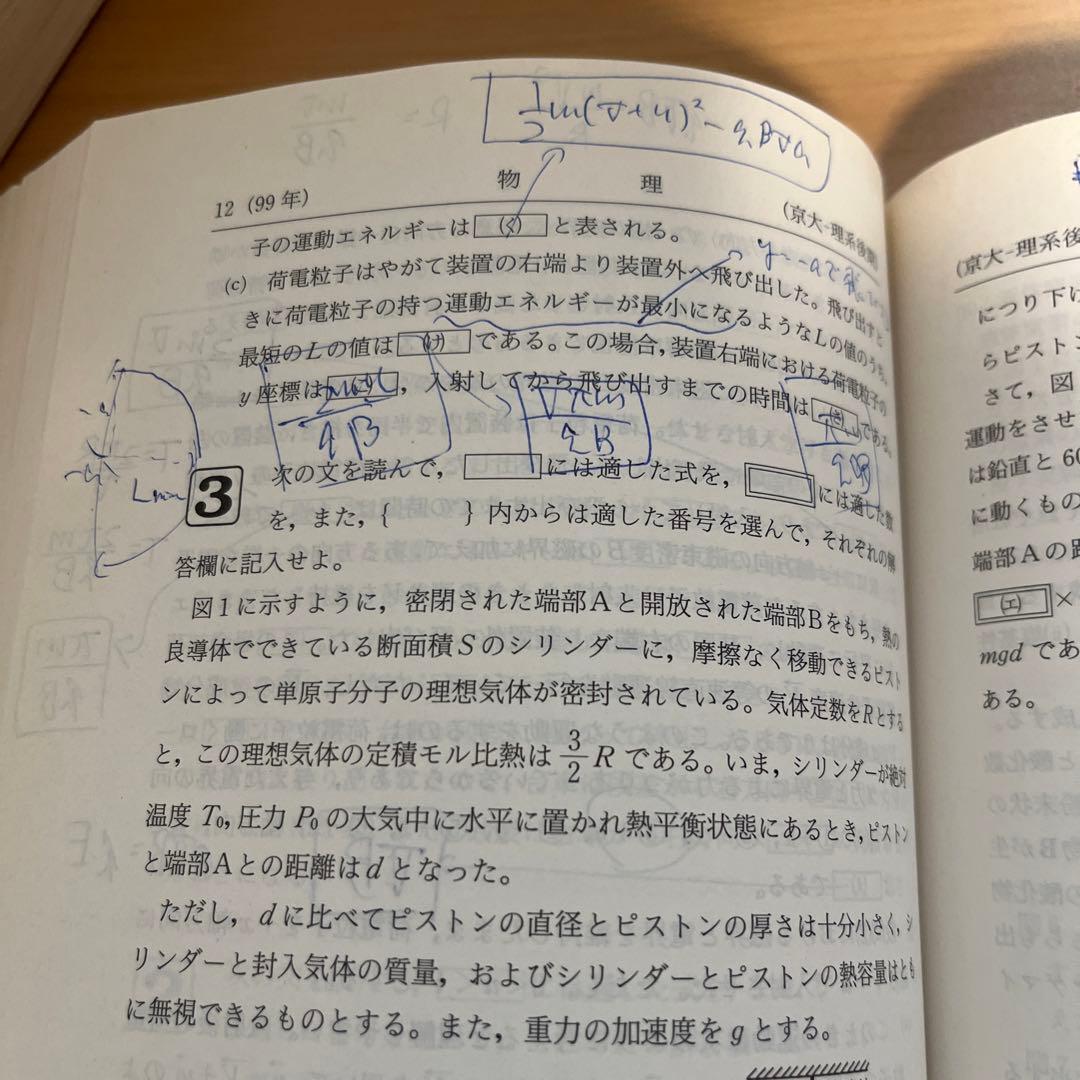 1/2 m(v+u)² − qBva
12 (99年) 物 理 (京大-理系後期)
子の運動エネルギーは (く) と表される。
(c) 荷電粒子はやがて装置の右端より装置外へ飛び出した。飛び出すと
きに荷電粒子の持つ運動エネルギーが最小になるようなLの値のうち,
最短のLの値は (け) である。この場合,装置右端における荷電粒子の
y座標は ,入射してから飛び出すまでの時間は (さ) である。
qB
πm
qB
Lmin
3 次の文を読んで, には適した式を, には適した数
を,また,{ }内からは適した番号を選んで,それぞれの解
答欄に記入せよ。
図1に示すように,密閉された端部Aと開放された端部Bをもち,熱の
良導体でできている断面積Sのシリンダーに,摩擦なく移動できるピスト
ンによって単原子分子の理想気体が密封されている。気体定数をRとする
と,この理想気体の定積モル比熱は3/2 Rである。いま,シリンダーが絶対
温度 T₀,圧力 P₀ の大気中に水平に置かれ熱平衡状態にあるとき,ピストン
と端部Aとの距離はdとなった。
ただし,dに比べてピストンの直径とピストンの厚さは十分小さく,シ
リンダーと封入気体の質量,およびシリンダーとピストンの熱容量はとも
に無視できるものとする。また,重力の加速度をgとする。
(京大-理系後
につり下げ
らピストン
さて,図
運動をさせ
は鉛直と60
に動くもの
端部Aの距
(エ) ×
mgdであ
ある。